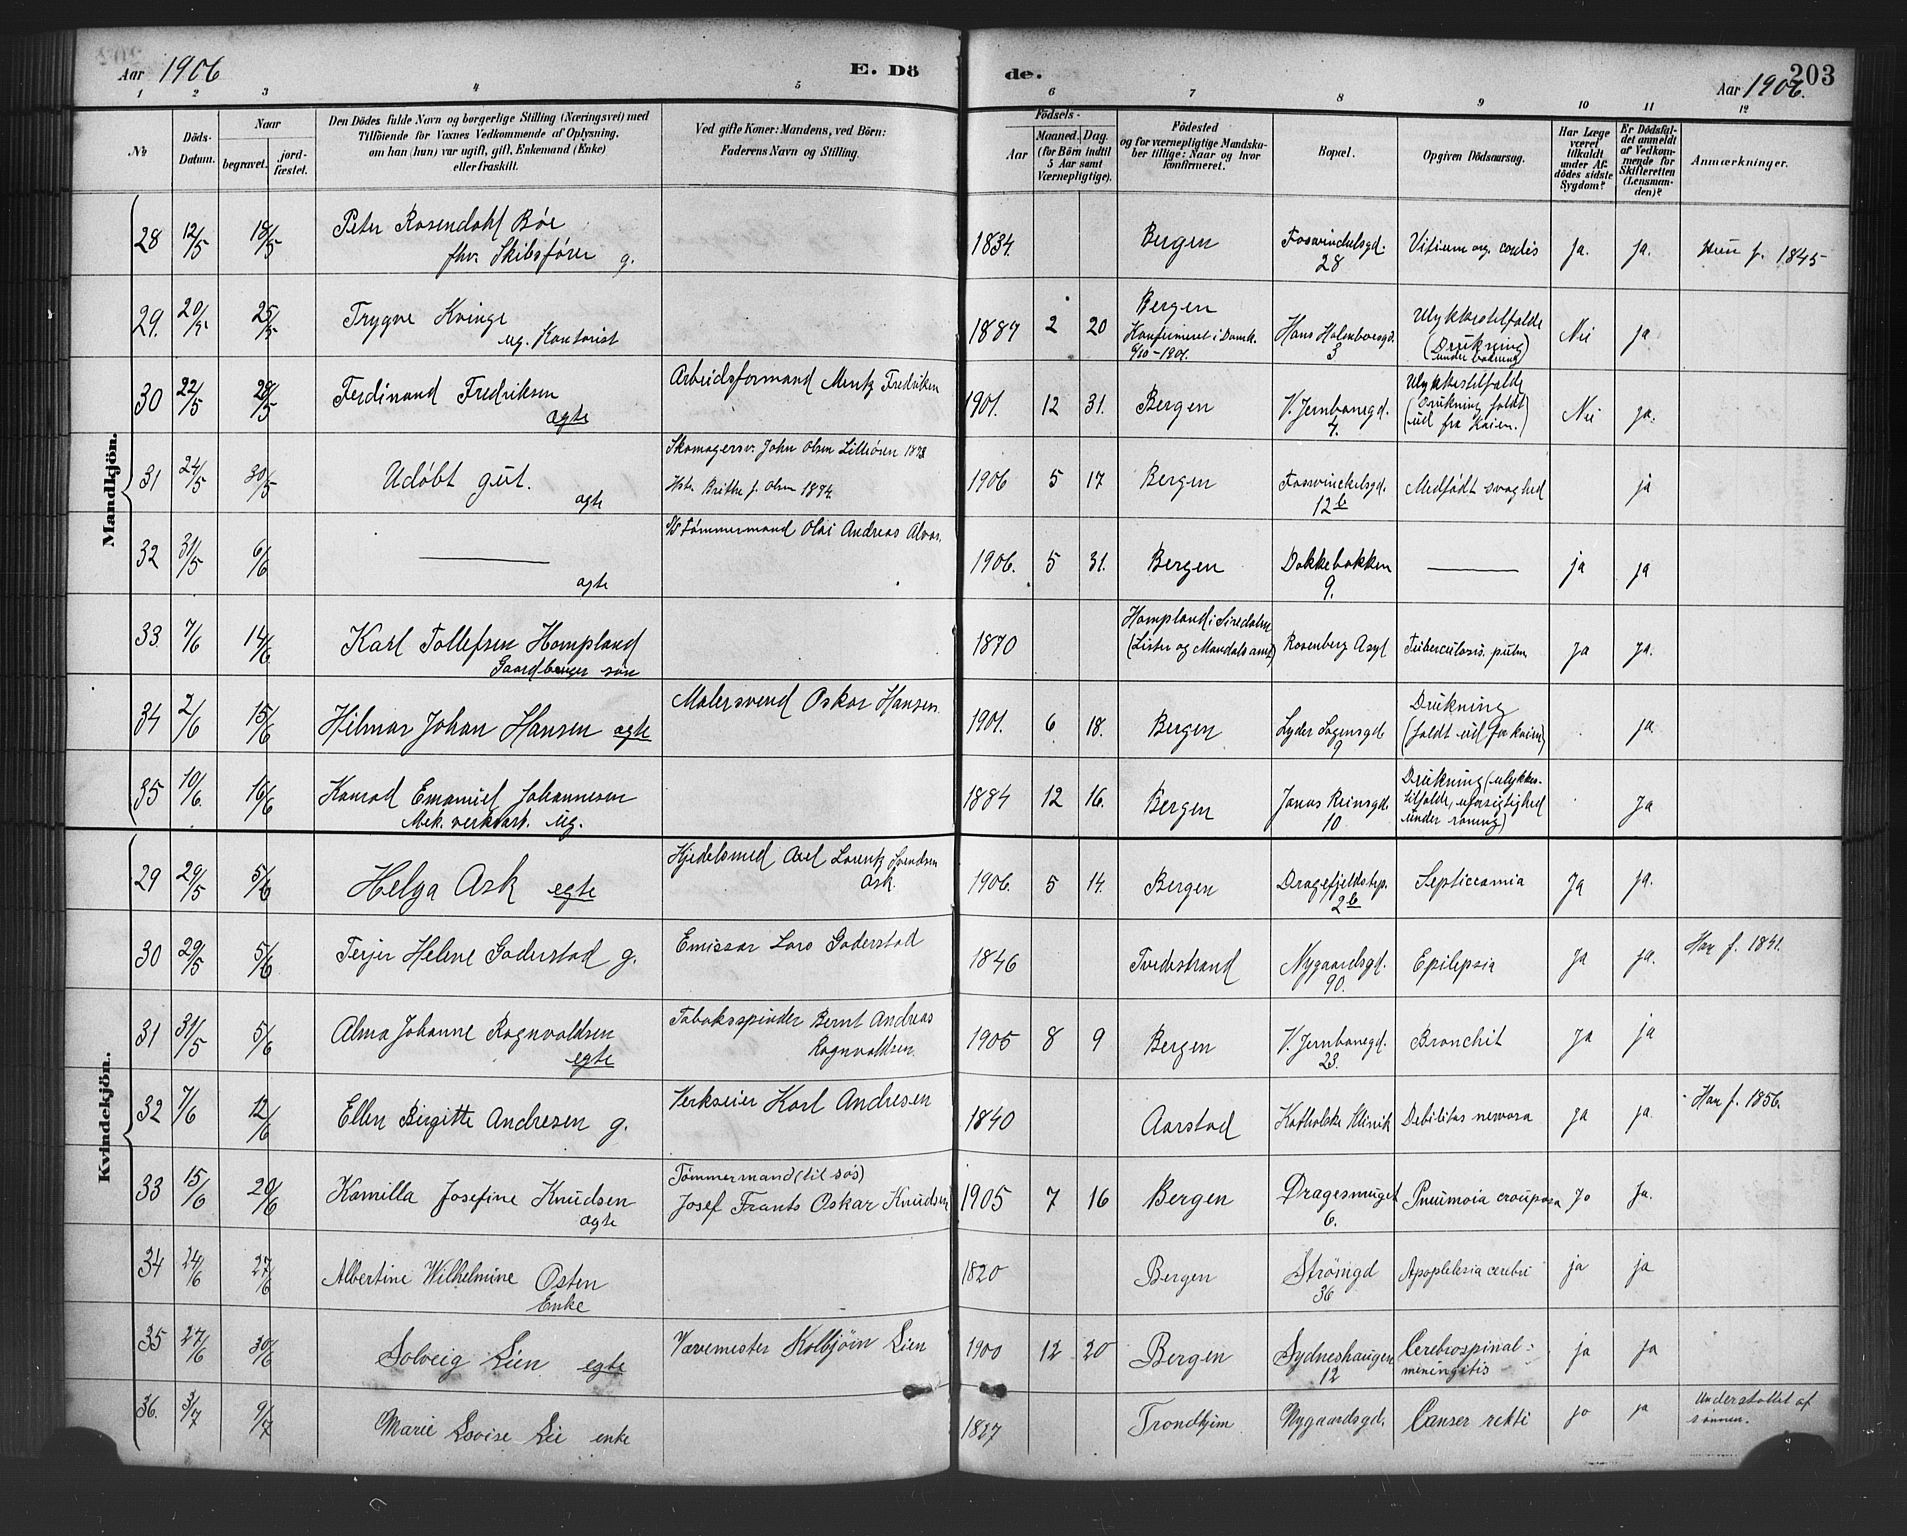 Aar 1906
E. Dö
de.
Aar 1906.
203
1 2 3 4 5 6 7 8 9 10 11 12
No
Döds-Datum.
Naar
begravet.
jord-fæstet.
Den Dödes fulde Navn og borgerlige Stilling (Næringsvei) med
Tilföiende for Voxnes Vedkommende af Oplysning,
om han (hun) var ugift, gift, Enkemand (Enke)
eller fraskilt.
Ved gifte Koner: Mandens, ved Börn:
Faderens Navn og Stilling.
Födsels-
Aar
Maaned. Dag.
(for Börn indtil
5 Aar samt
Værnepligtige).
Födested
og for værnepligtige Mandska-
ber tillige: Naar og hvor
konfirmeret.
Bopæl.
Opgiven Dödsaarsag.
Har Læge
været
tilkaldt
under Af-
dödes sidste
Sygdom?
Er Dödsfal-
det anmeldt
af Vedkom-
mende for
Skifteretten
(Lensman-
den)?
Anmærkninger.
Mandkjön.
28 12/5 18/5 Peter Rosendahl Böe 1834. Bergen Fosvinckelsgd. Vitium org. cordis ja. ja. f. 1845
fhv. Skibsförer g. 28
29. 20/5 25/5 Trygve Kvinge 1887 2 20 Bergen Hans Holmboesgd. Ulykkestilfælde Nei ja
ug. Kontorist Konfirmeret i Domk. 3 (Drukning
6/10-1901. under badning)
30 22/5 28/5 Ferdinand Fredriksen Arbeidsformand Mentz Fredriksen 1901. 12 31. Bergen V. Jernbanegd. Ulykkestilfælde Nei ja.
ægte 7. (Drukning faldt
ud fra Kaien.)
31 24/5 30/5 Udöbt gut. Skomagersv. John Olsen 1906 5 17 Bergen Fosvinckelsgd. Medfödt svaghed ja
ægte f. Olsen 1874. 12b
32 31/5 6/6 ——— Tömmermand Olai Andreas 1906. 5 31. Bergen Dokkebakken ——— ja ja
ægte 9.
33 7/6 14/6 Karl Tollefsen Hompland 1870 Hompland i Siredalen Rosenberg Asyl Tuberculosis pulm ja ja.
Gaardbruger sön (Lister og Mandals amt)
34 2/6 15/6 Hilmar Johan Hansen ægte Malersvend Oskar Hansen. 1901. 6 18. Bergen Lyder Sagensgd. Drukning ja.
9 (faldt ud fra kaien)
35 10/6. 16/6 Konrad Emanuel Johannesen 1884 12 16. Bergen Jonas Reinsgd. Drukning (ulykkes- ja
Mek. verkst.arb. ug. 10 tilfælde, uforsigtighed
under roning)
Kvindekjön.
29 29/5 5/6 Helga Ask egte Kjedelsmed Axel Lorentz Svendsen 1906. 5 14. Bergen Dragefjeldstrp. Septiccæmia ja ja.
Ask. 2b
30 29/5 5/6 Terjer Helene Goderstad g. Emissær Lars Goderstad 1846 Tvedestrand Nygaardsgd. Epilepsia ja ja. Han f. 1841.
90.
31 31/5 5/6 Alma Johanne Ragnvaldsen Tobaksspinder Bernt Andreas 1905 8 9 Bergen V. Jernbanegd. Bronchit ja ja
egte Ragnvaldsen. 23.
32 7/6 12/6 Ellen Birgitte Andresen g. Verkseier Karl Andresen 1840 Aarstad Katholske Klinik Debilitas nervosa ja ja. Han f. 1856.
33 15/6 20/6 Kamilla Josefine Knudsen Tömmermand (til sös) 1905 7 16 Bergen Dragesmuget Pneumoia crouposa Jo Ja.
ægte Josef Frants Oskar Knudsen 6.
34 24/6 27/6 Albertine Wilhelmine Osten 1820 Bergen Strömgd Apoplelsia cerebri ja ja
Enke 36
35 27/6 30/6 Solveig Lien egte Vævemester Kolbjörn Lien 1900 12 20 Bergen Sydneshaugen Cerebrospinal- ja ja
12 meningitis
36. 3/7 9/7 Marie Lovise Lie enke 1827 Trondhjem Nygaardsgd. Canser rekti jo ja Understöttet af
sönnen.